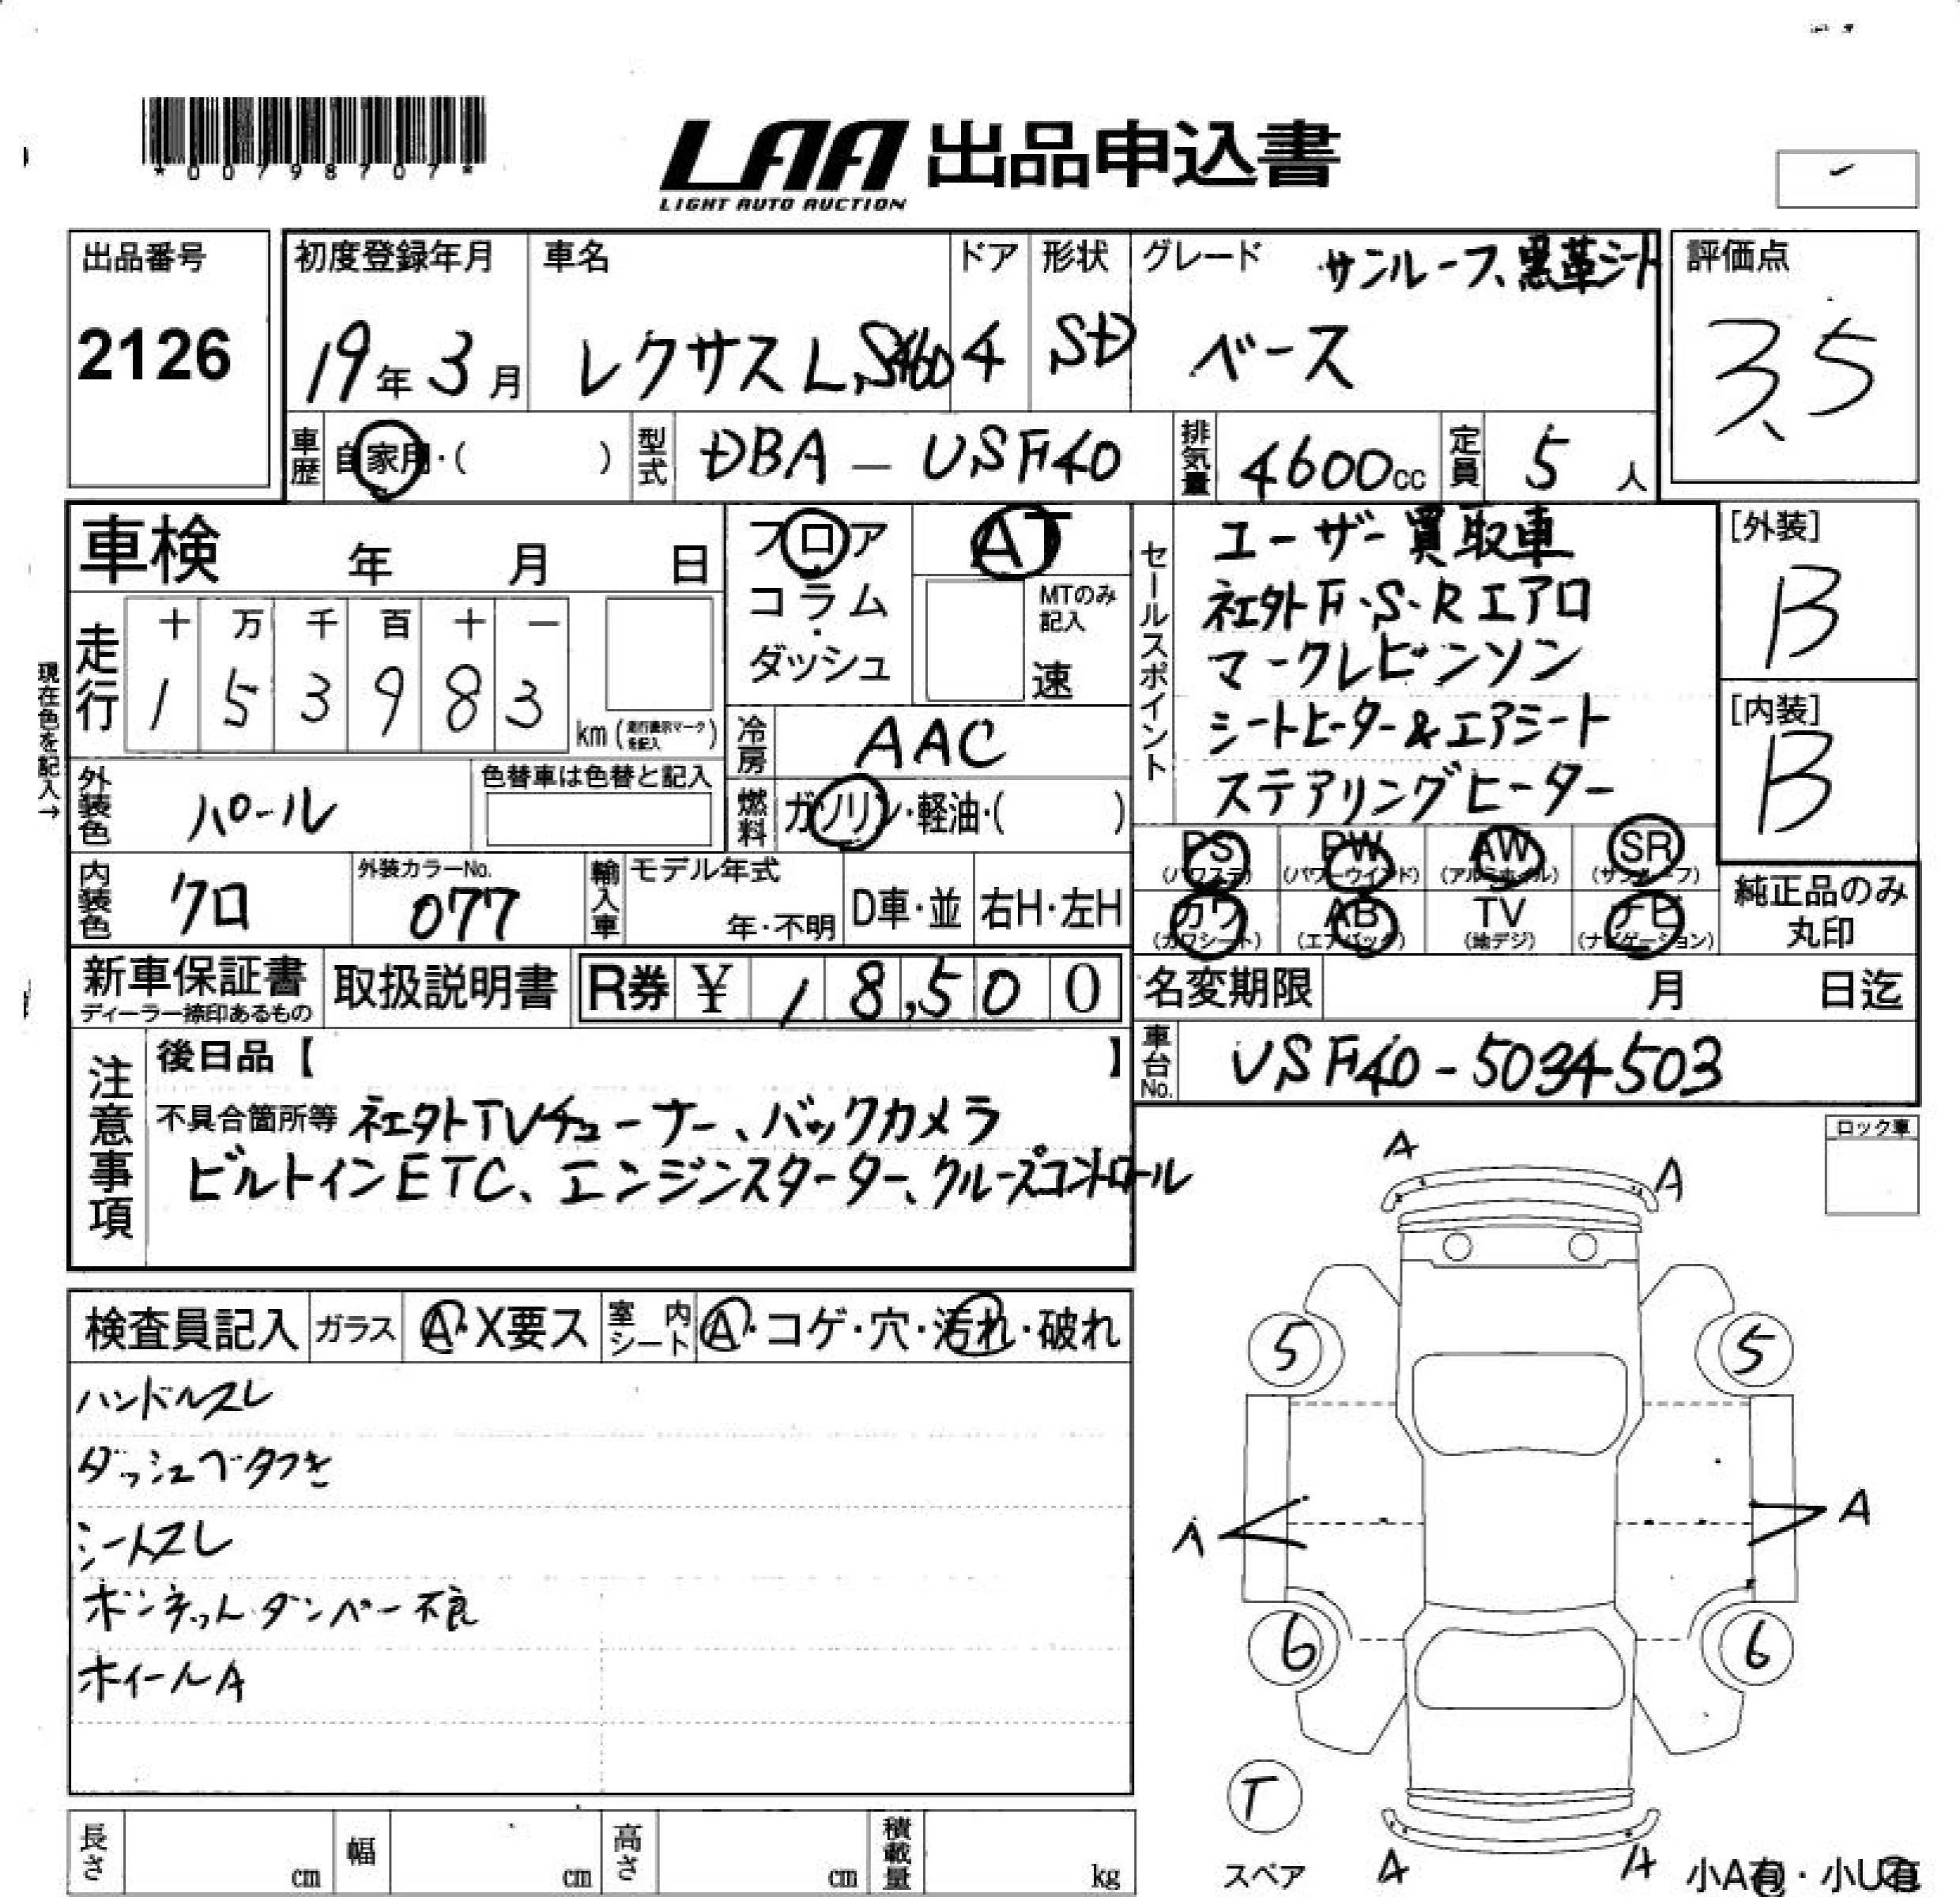 *00798707*
LAA 出品申込書
LIGHT AUTO AUCTION
出品番号
2126
初度登録年月
19年3月
車名
レクサスLS460
ドア
4
形状
SD
グレード サンルーフ、黒革シート
ベース
評価点
3.5
車歴 自家用・( )
型式 DBA - USF40
排気量 4600cc
定員 5人
車検 年 月 日
フロア
コラム
・
ダッシュ
AT
MTのみ
記入
速
走行
十 万 千 百 十 一
1 5 3 9 8 3
km(走行表示マークを記入)
現在色を記入→
冷房 AAC
外装色 パール
色替車は色替と記入
燃料 ガソリン・軽油・( )
内装色 クロ
外装カラーNo.
077
輸入車
モデル年式
年・不明
D車・並
右H・左H
セールスポイント
ユーザー買取車
社外F・S・Rエアロ
マークレビンソン
シートヒーター&エアシート
ステアリングヒーター
[外装]
B
[内装]
B
PS PW AW SR
(パワステ) (パワーウインド) (アルミホイル) (サンルーフ)
カワ AB TV ナビ
(カワシート) (エアバック) (地デジ) (ナビゲーション)
純正品のみ
丸印
新車保証書
ディーラー捺印あるもの
取扱説明書
R券 ¥ 18,500
名変期限 月 日迄
車台No. USF40-5034503
注意事項
後日品【 】
不具合箇所等 社外TVチューナー、バックカメラ
ビルトインETC、エンジンスターター、クルーズコントロール
ロック車
検査員記入 ガラス A・X要ス 室内シート A・コゲ・穴・汚れ・破れ
ハンドルスレ
ダッシュベタつき
シートスレ
ボンネットダンパー不良
ホイールA
A
A
5
5
A
A
6
6
T
スペア
A
A
小A有・小U有
長さ cm
幅 cm
高さ cm
積載量 kg